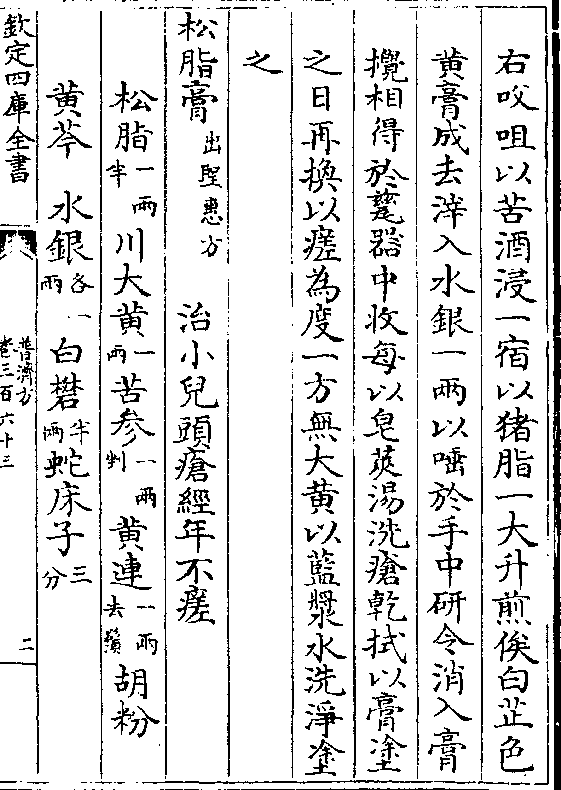 右㕮咀以苦酒浸一宿以猪脂一大升煎俟白芷色
黄膏成去滓入水銀一兩以唾於手中研令消入膏
攪相得於甆器中收每以皂莢湯洗瘡乾拭以膏塗
之日再換以瘥為度一方無大黄以藍漿水洗淨塗
之
松脂膏出聖惠方 治小兒頭瘡經年不瘥
松脂一兩半川大黄一兩苦參一兩剉黄連一兩去鬚胡粉
黄芩 水銀各一兩白礬半兩蛇床子三分
欽定四庫全書
普濟方
卷三百六十三
二